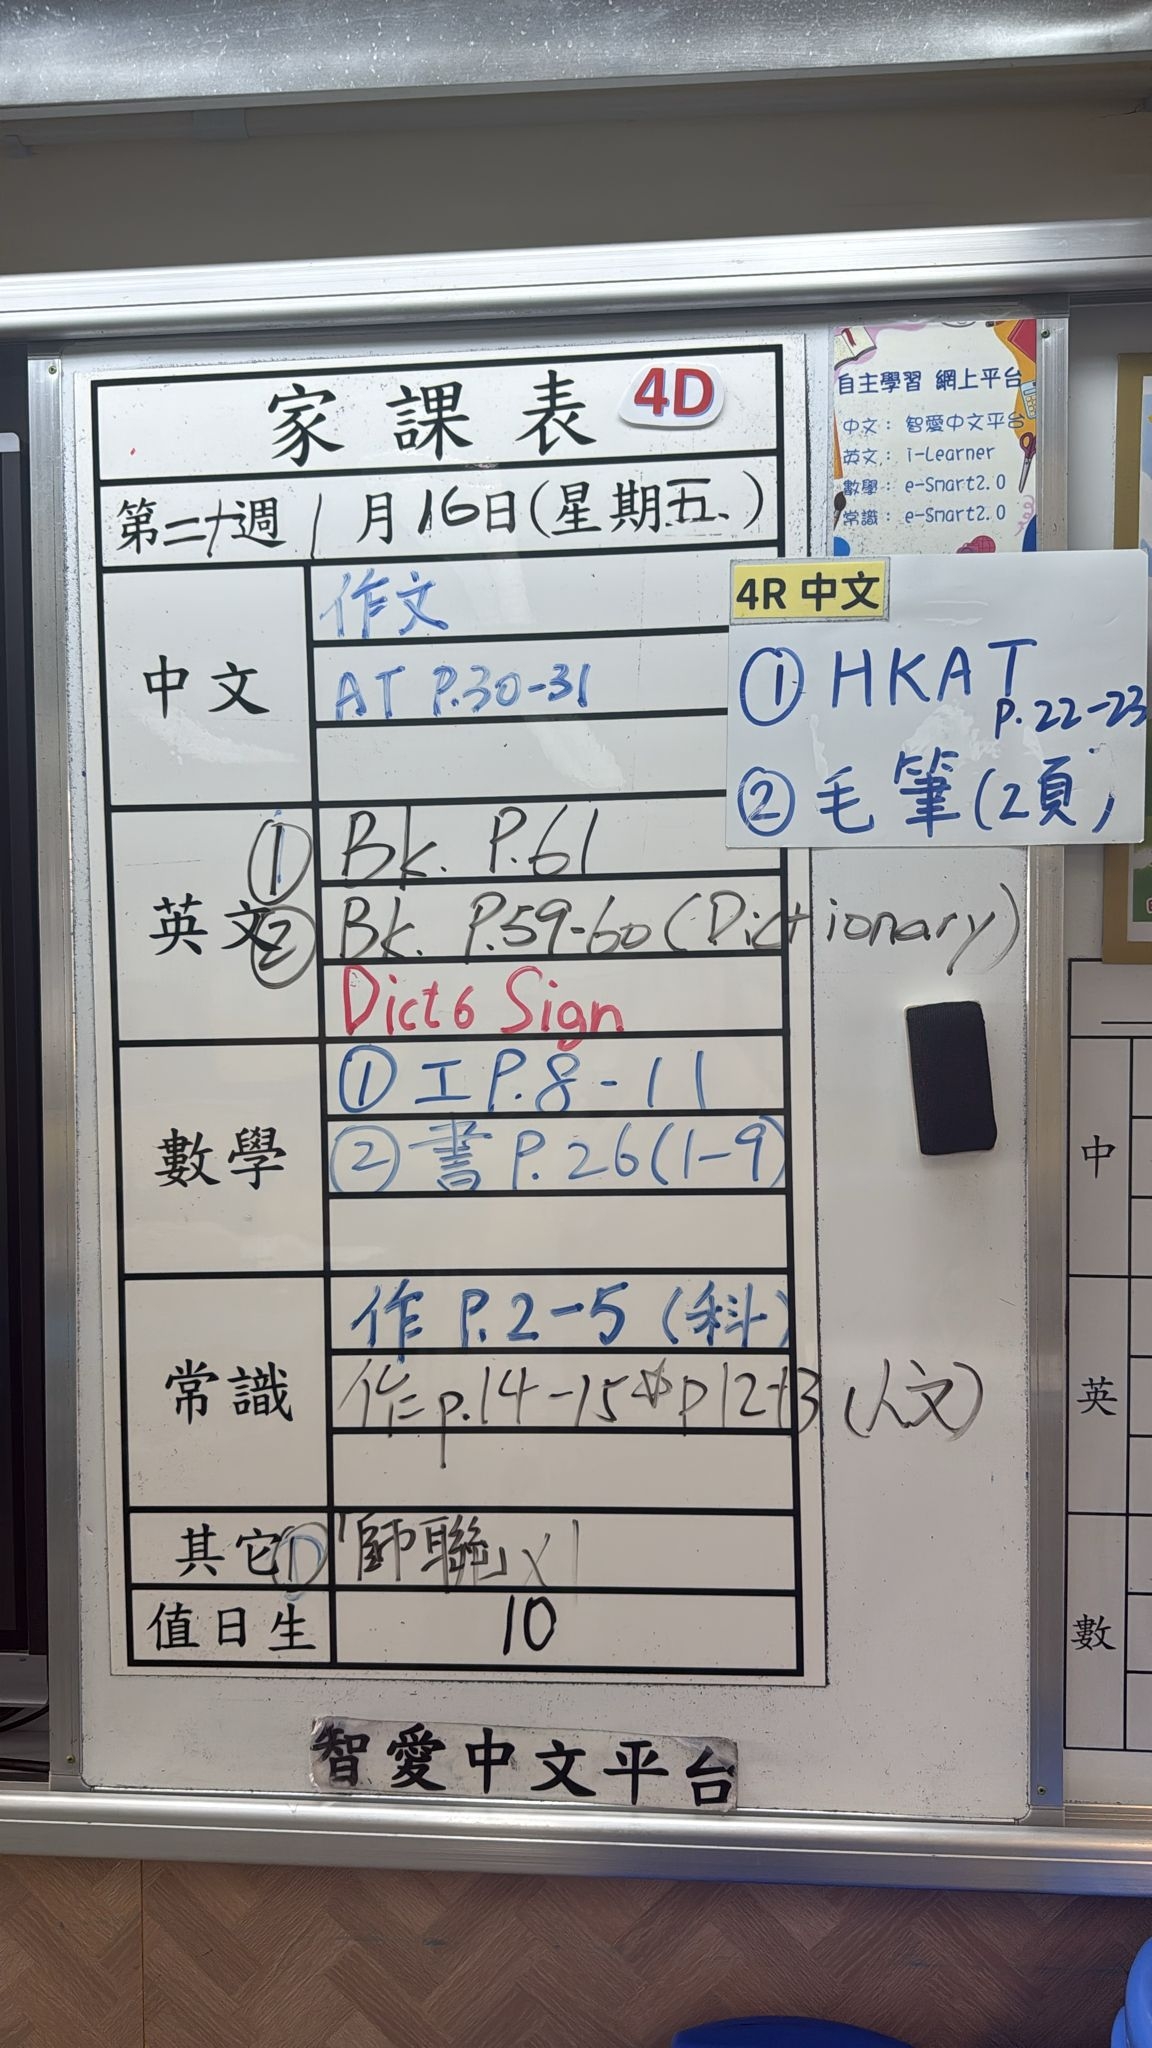 家課表 4D
第二十週 1月16日(星期五)
中文
作文
AT P.30-31
英文
① Bk. P.61
② Bk. P.59-60 (Dictionary)
Dict 6 Sign
數學
① 工 P.8-11
② 書 P.26(1-9)
常識
作 P.2-5 (科)
作 p.14-15 p12-13 (人文)
其它
① 「師聯」x1
值日生
10
智愛中文平台
自主學習 網上平台
中文: 智愛中文平台
英文: i-Learner
數學: e-Smart2.0
常識: e-Smart2.0
4R 中文
① HKAT
P.22-23
② 毛筆(2頁)
中
英
數